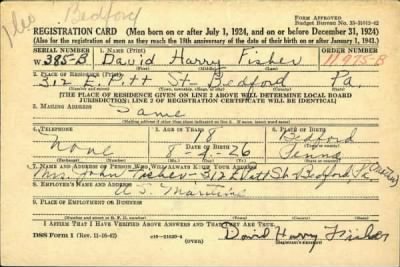 Bedford
FORM APPROVED
Budget Bureau No. 33-R012-42
REGISTRATION CARD (Men born on or after July 1, 1924, and on or before December 31, 1924)
(Also for the registration of men as they reach the 18th anniversary of the date of their birth on or after January 1, 1943.)
SERIAL NUMBER 1. NAME (Print) ORDER NUMBER
W 385-B David Harry Fisher 11975-B
(First) (Middle) (Last)
2. PLACE OF RESIDENCE (Print)
312 E. Pitt St Bedford Pa.
(Number and street) (Town, township, village, or city) (County) (State)
[THE PLACE OF RESIDENCE GIVEN ON LINE 2 ABOVE WILL DETERMINE LOCAL BOARD
JURISDICTION; LINE 2 OF REGISTRATION CERTIFICATE WILL BE IDENTICAL]
3. MAILING ADDRESS
Same
4. TELEPHONE 5. AGE IN YEARS 6. PLACE OF BIRTH
18 Bedford
None DATE OF BIRTH
8-9-26 Penna
(Exchange) (Number) (Mo.) (Day) (Yr.) (State or country)
7. NAME AND ADDRESS OF PERSON WHO WILL ALWAYS KNOW YOUR ADDRESS
Mrs. John Fisher - 312 E Pitt St- Bedford
8. EMPLOYER'S NAME AND ADDRESS
U.S. Maritime
9. PLACE OF EMPLOYMENT OR BUSINESS
(Number and street or R. F. D. number) (Town) (County) (State)
I AFFIRM THAT I HAVE VERIFIED ABOVE ANSWERS AND THAT THEY ARE TRUE.
DSS Form 1 (Rev. 11-16-42) (OVER) David Harry Fisher
(Registrant's signature)